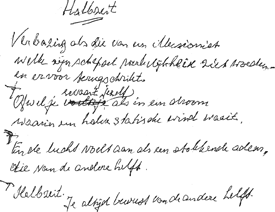 Halbzeit
Verbazing als die van een illusionist
welke zijn schepsel werkelijkheid ziet worden
en ervoor terugschrikt
Ofwel je als in een droom
waarin een halve statische wind waait.
En de lucht rondtast als een stokkende adem,
die van de andere helft.
Halbzeit:
je altijd bewust van de andere helft.